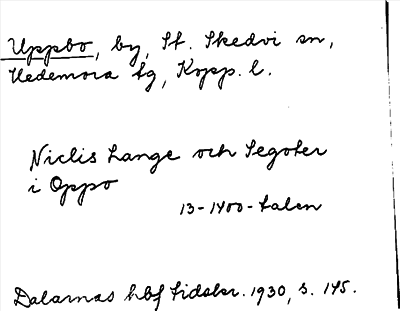 Uppbo, by, St. Skedvi sn,
Hedemora tg, Kopp. l.
Niclis Lange och Segoter
i Oppo
13-1400-talen
Dalarnas hbf tidskr. 1930, s. 145.